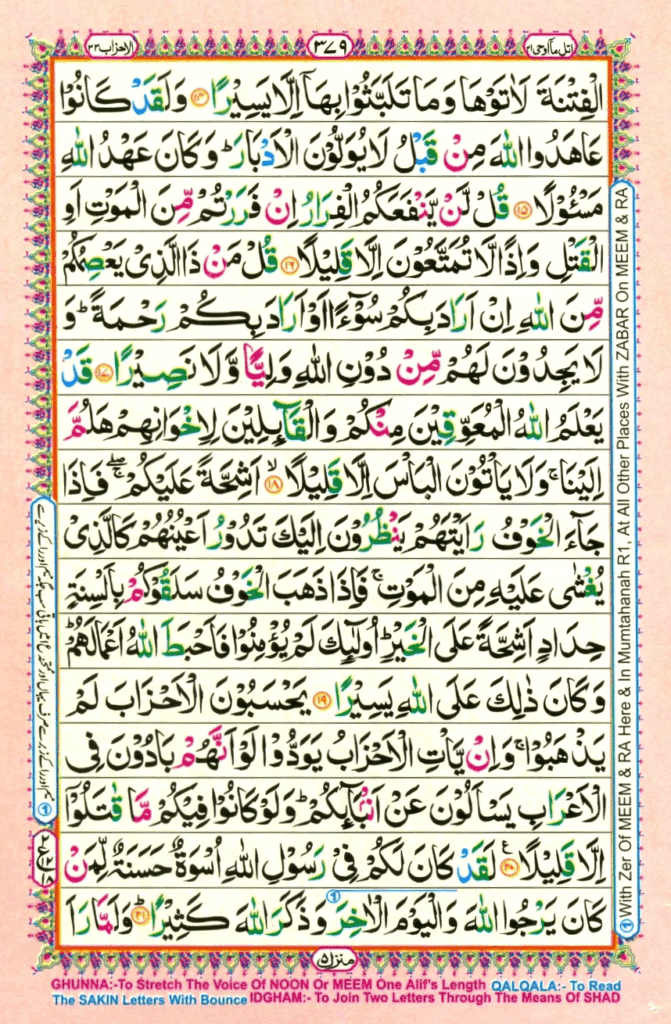 الاحزاب ٣٣
٣٧٩
اتل ما اوحی ٢١
الْفِتْنَةَ لَاٰتَوْهَا وَمَا تَلَبَّثُوْا بِهَاۤ اِلَّا یَسِیْرًا ﴿۱۴﴾ وَلَقَدْ كَانُوْا
عَاهَدُوا اللّٰهَ مِنْ قَبْلُ لَا یُوَلُّوْنَ الْاَدْبَارَ ؕ وَكَانَ عَهْدُ اللّٰهِ
مَسْـُٔوْلًا ﴿۱۵﴾ قُلْ لَّنْ یَّنْفَعَكُمُ الْفِرَارُ اِنْ فَرَرْتُمْ مِّنَ الْمَوْتِ اَوِ
الْقَتْلِ وَاِذًا لَّا تُمَتَّعُوْنَ اِلَّا قَلِیْلًا ﴿۱۶﴾ قُلْ مَنْ ذَا الَّذِیْ یَعْصِمُكُمْ
مِّنَ اللّٰهِ اِنْ اَرَادَ بِكُمْ سُوْٓءًا اَوْ اَرَادَ بِكُمْ رَحْمَةً ؕ وَ
لَا یَجِدُوْنَ لَهُمْ مِّنْ دُوْنِ اللّٰهِ وَلِیًّا وَّلَا نَصِیْرًا ﴿۱۷﴾ قَدْ
یَعْلَمُ اللّٰهُ الْمُعَوِّقِیْنَ مِنْكُمْ وَالْقَآىِٕلِیْنَ لِاِخْوَانِهِمْ هَلُمَّ
اِلَیْنَا ۚ وَلَا یَاْتُوْنَ الْبَاْسَ اِلَّا قَلِیْلًا ﴿۱۸﴾ ۙ اَشِحَّةً عَلَیْكُمْ ۖۚ فَاِذَا
جَآءَ الْخَوْفُ رَاَیْتَهُمْ یَنْظُرُوْنَ اِلَیْكَ تَدُوْرُ اَعْیُنُهُمْ كَالَّذِیْ
یُغْشٰی عَلَیْهِ مِنَ الْمَوْتِ ۚ فَاِذَا ذَهَبَ الْخَوْفُ سَلَقُوْكُمْ بِاَلْسِنَةٍ
حِدَادٍ اَشِحَّةً عَلَی الْخَیْرِ ؕ اُولٰٓىِٕكَ لَمْ یُؤْمِنُوْا فَاَحْبَطَ اللّٰهُ اَعْمَالَهُمْ ؕ
وَكَانَ ذٰلِكَ عَلَی اللّٰهِ یَسِیْرًا ﴿۱۹﴾ یَحْسَبُوْنَ الْاَحْزَابَ لَمْ
یَذْهَبُوْا ۚ وَاِنْ یَّاْتِ الْاَحْزَابُ یَوَدُّوْا لَوْ اَنَّهُمْ بَادُوْنَ فِی
الْاَعْرَابِ یَسْاَلُوْنَ عَنْ اَنْۢبَآىِٕكُمْ ؕ وَلَوْ كَانُوْا فِیْكُمْ مَّا قٰتَلُوْۤا
اِلَّا قَلِیْلًا ﴿۲۰﴾ ع لَقَدْ كَانَ لَكُمْ فِیْ رَسُوْلِ اللّٰهِ اُسْوَةٌ حَسَنَةٌ لِّمَنْ
كَانَ یَرْجُوا اللّٰهَ وَالْیَوْمَ الْاٰخِرَ وَذَكَرَ اللّٰهَ كَثِیْرًا ﴿۲۱﴾ ؕ وَلَمَّا رَاَ
منزل ٥
① With Zer Of MEEM & RA Here & In Mumtahanah R1, At All Other Places With ZABAR On MEEM & RA
GHUNNA:-To Stretch The Voice Of NOON Or MEEM One Alif's Length QALQALA:- To Read
The SAKIN Letters With Bounce IDGHAM:- To Join Two Letters Through The Means Of SHAD